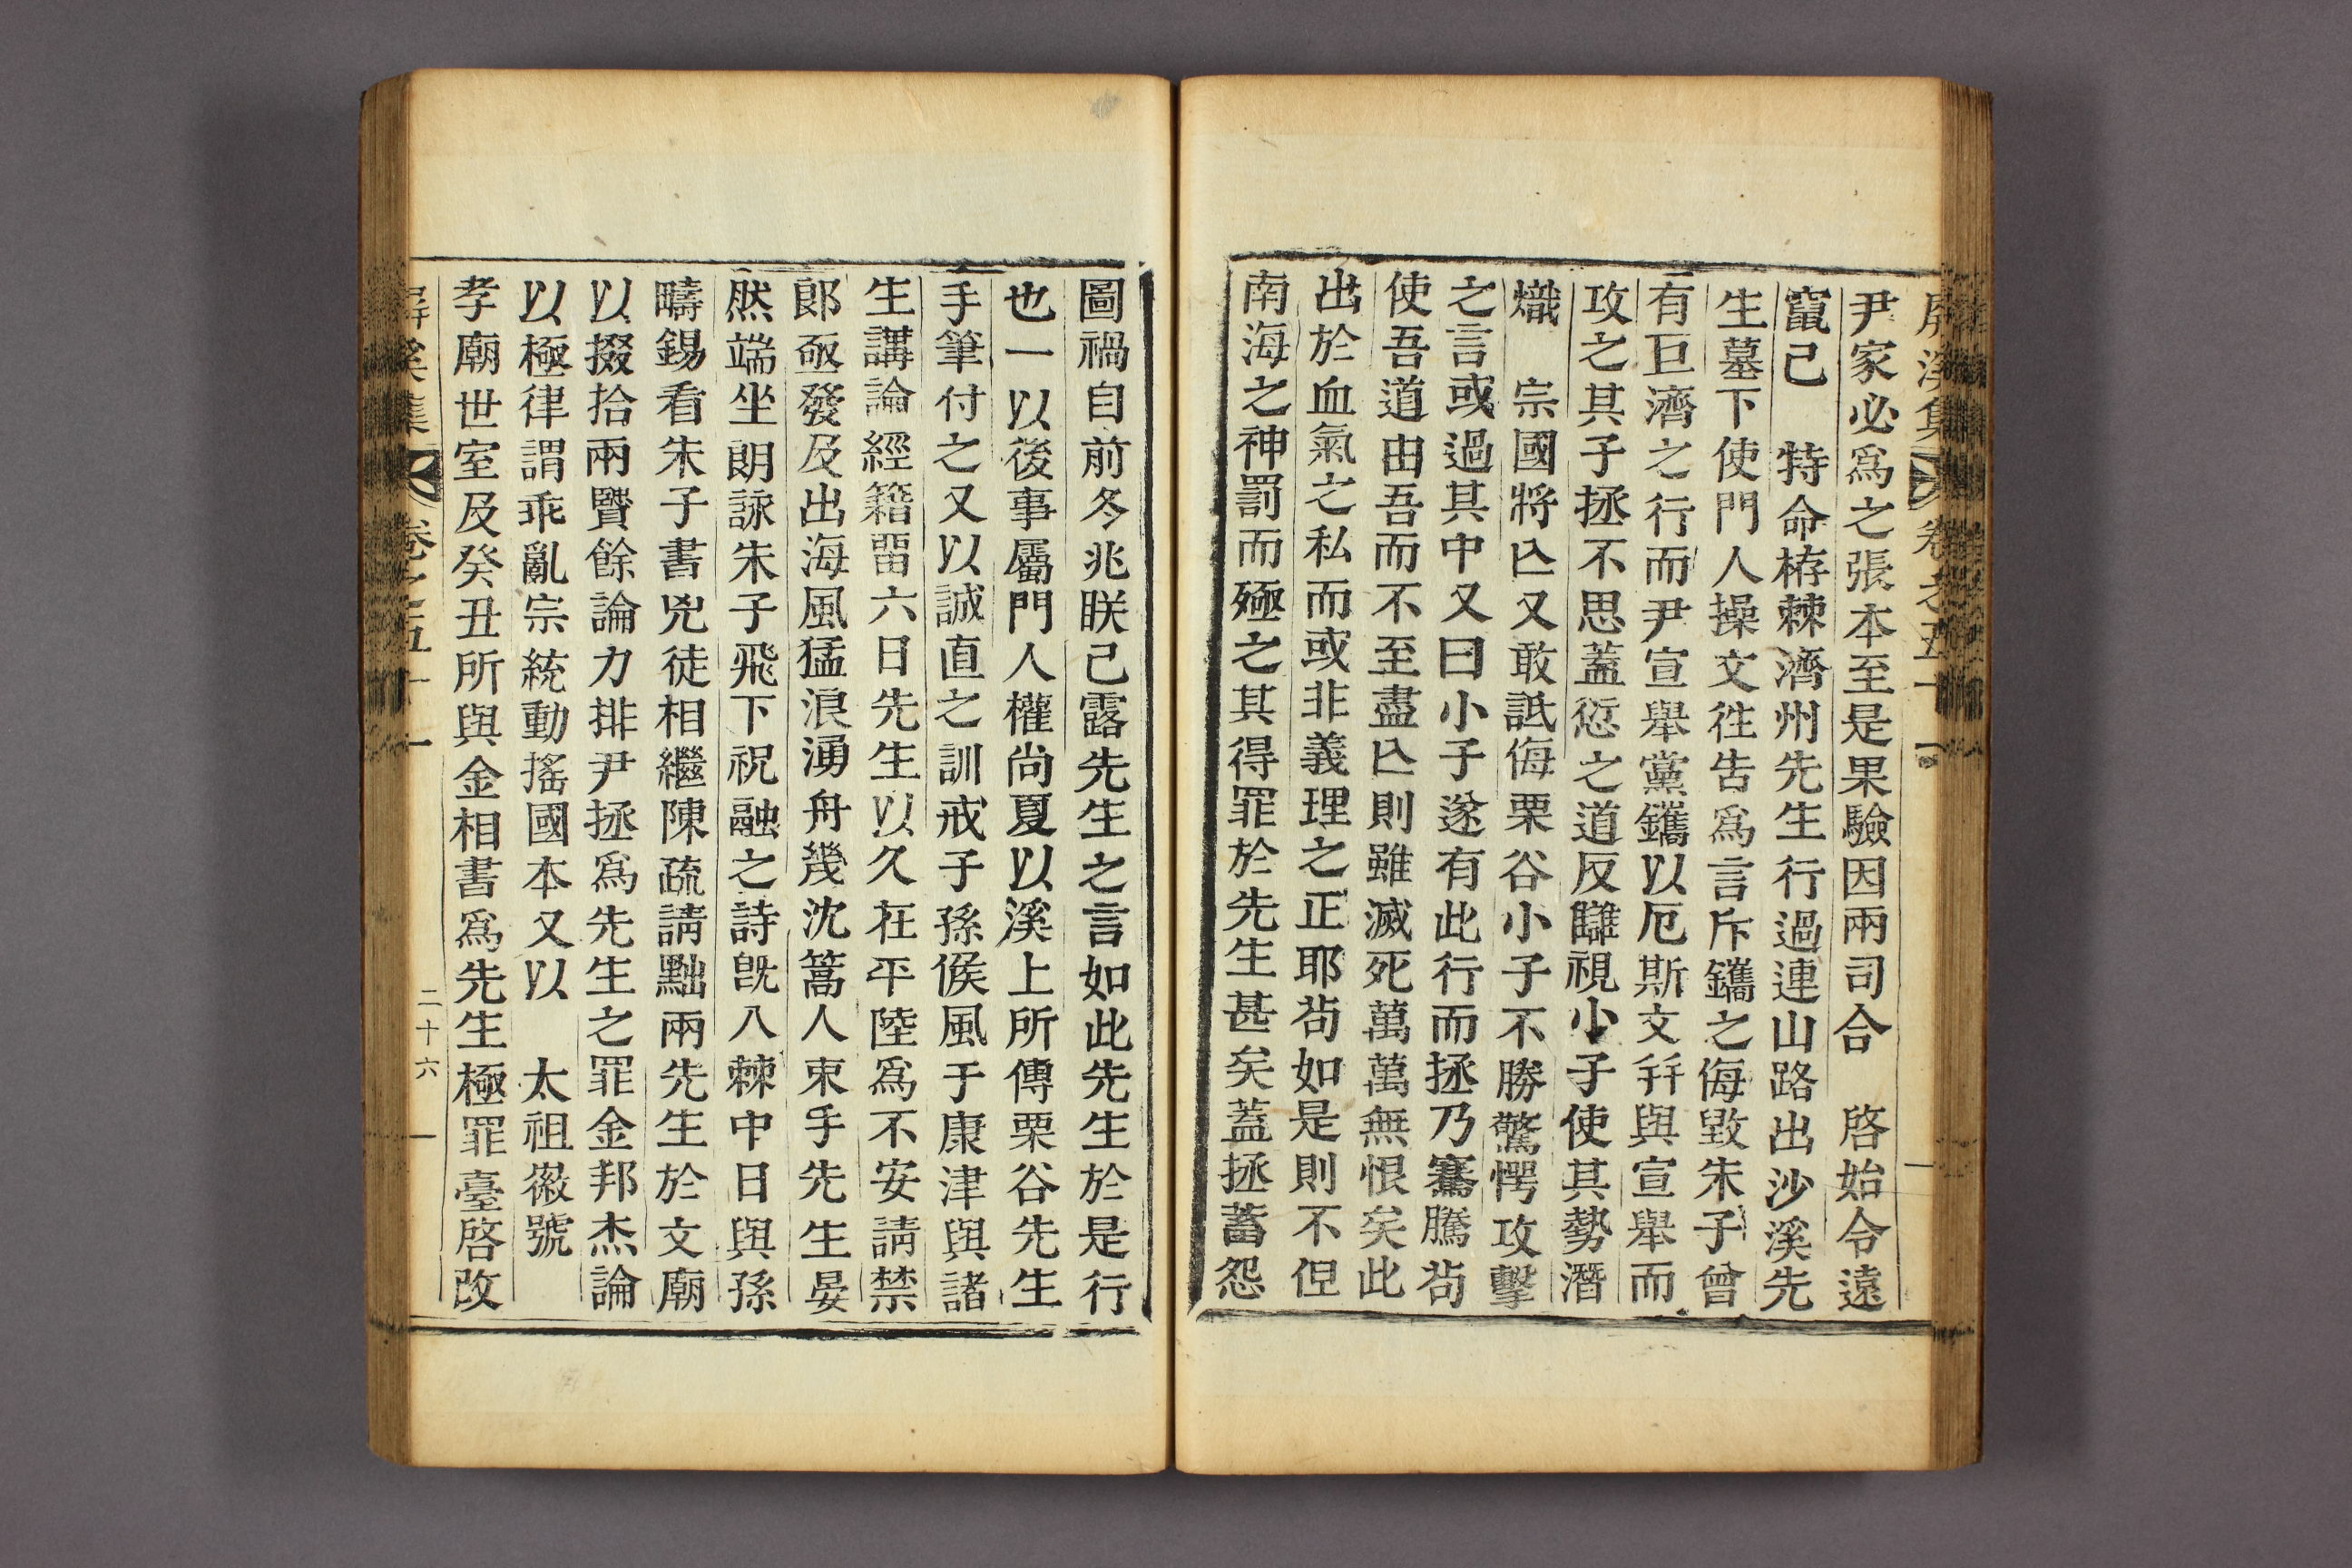 屛溪集 卷之五十一
尹家必爲之張本至是果驗因兩司合 啓始令遠
竄已 特命栫棘濟州先生行過連山路出沙溪先
生墓下使門人操文徃告爲言斥鑴之侮毀朱子曾
有巨濟之行而尹宣擧黨鑴以厄斯文幷與宣擧而
攻之其子拯不思蓋愆之道反讎視小子使其勢潛
熾 宗國將亾又敢詆侮栗谷小子不勝驚愕攻擊
之言或過其中又曰小子遂有此行而拯乃騫騰茍
使吾道由吾而不至盡亾則雖滅死萬萬無恨矣此
出於血氣之私而或非義理之正耶茍如是則不但
南海之神罰而殛之其得罪於先生甚矣蓋拯蓄怨
圖禍自前冬兆眹已露先生之言如此先生於是行
也一以後事屬門人權尙夏以溪上所傳栗谷先生
手筆付之又以誠直之訓戒子孫候風于康津與諸
生講論經籍畱六日先生以久在平陸爲不安請禁
郞亟發及出海風猛浪湧舟幾沈篙人束手先生晏
然端坐朗詠朱子飛下祝融之詩旣入棘中日與孫
疇錫看朱子書兇徒相繼陳疏請黜兩先生於文廟
以掇拾兩賢餘論力排尹拯爲先生之罪金邦杰論
以極律謂乖亂宗統動搖國本又以 太祖徽號
孝廟世室及癸丑所與金相書爲先生極罪臺啓改
屛溪集 卷之五十一 二十六